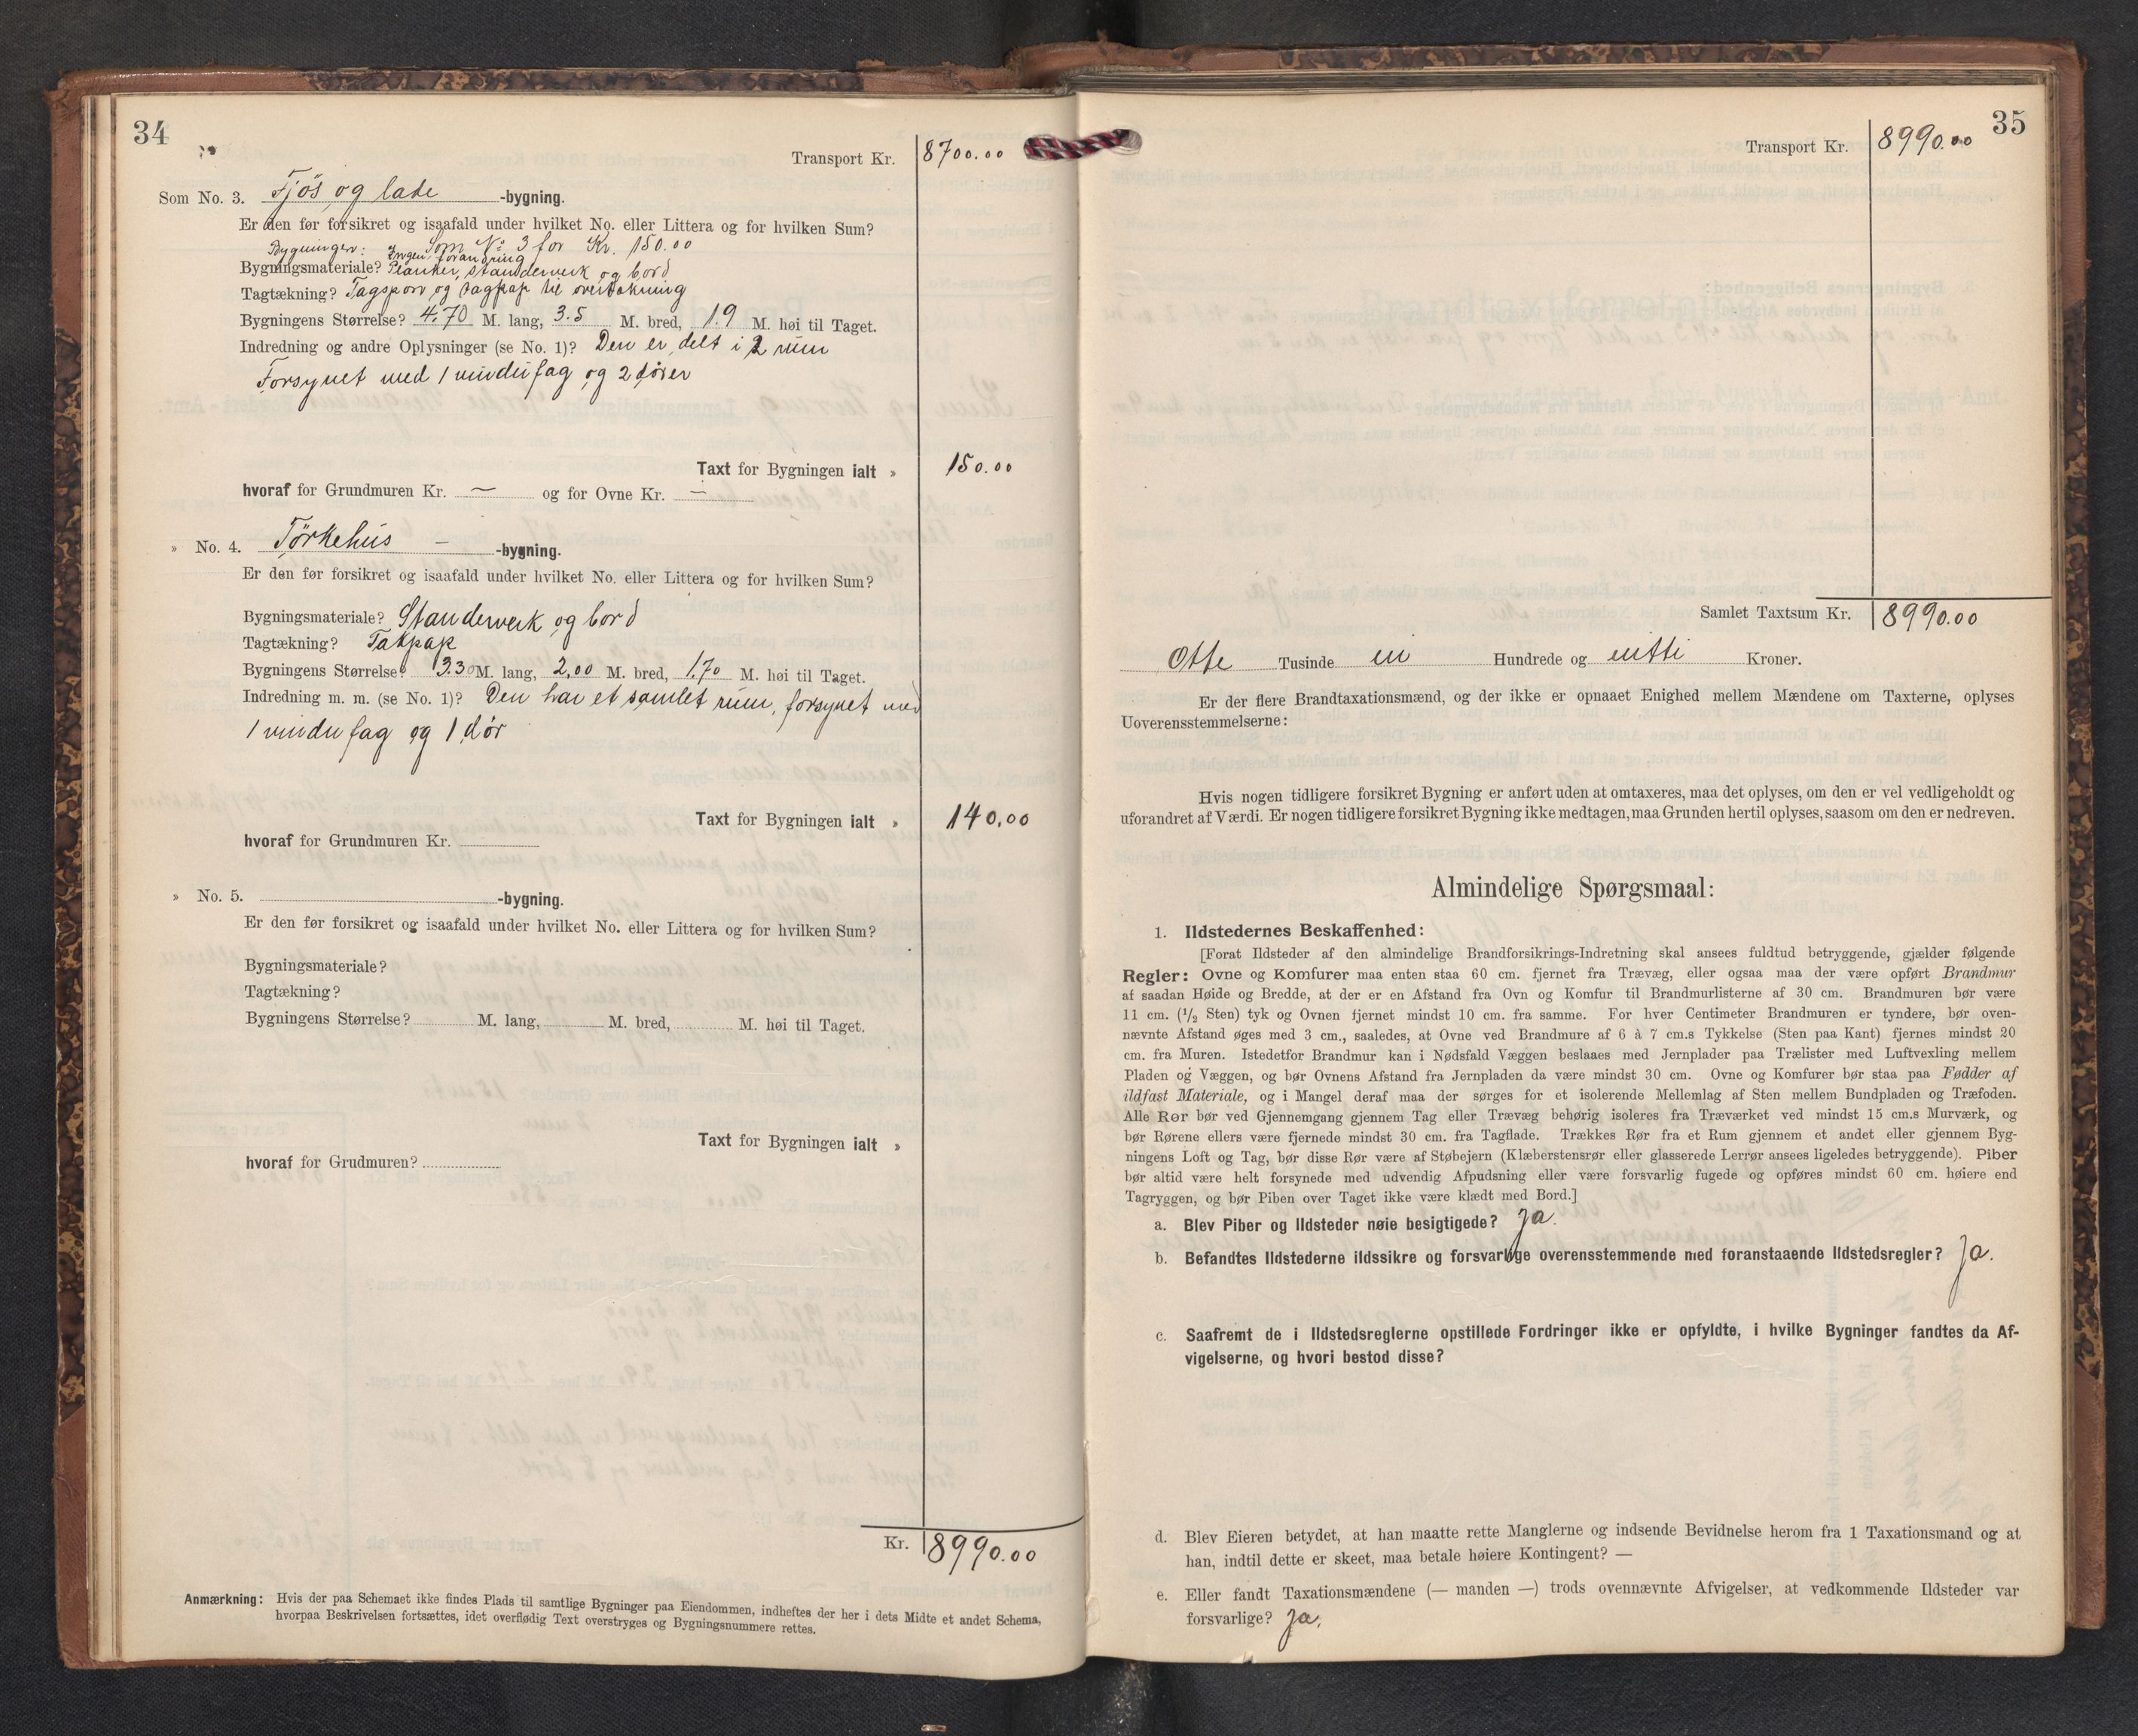 34
Transport Kr. 8700.00
Som No. 3. Fjös og lade -bygning.
Er den før forsikret og isaafald under hvilket No. eller Littera og for hvilken Sum?
Bygninger: Som No 3 for Kr. 150.00
Ingen forandring
Bygningsmateriale? Planker, standerverk og bord
Tagtækning? Tagspon og tagpap til overtækning
Bygningens Størrelse? 4.70 M. lang, 3.5 M. bred, 1.9 M. høi til Taget.
Indredning og andre Oplysninger (se No. 1)? Den er delt i 2 rum
Forsynet med 1 vindufag og 2 dører
Taxt for Bygningen ialt » 150.00
hvoraf for Grundmuren Kr. — og for Ovne Kr. —
» No. 4. Tørkehus — -bygning.
Er den før forsikret og isaafald under hvilket No. eller Littera og for hvilken Sum?
Bygningsmateriale? Standerverk og bord
Tagtækning? Takpap
Bygningens Størrelse? 3.30 M. lang, 2,00 M. bred, 1.70 M. høi til Taget.
Indredning m. m. (se No. 1)? Den har et samlet rum, forsynet med
1 vindufag og 1 dør
Taxt for Bygningen ialt » 140,00
hvoraf for Grundmuren Kr.
» No. 5. -bygning.
Er den før forsikret og isaafald under hvilket No. eller Littera og for hvilken Sum?
Bygningsmateriale?
Tagtækning?
Bygningens Størrelse? M. lang, M. bred, M. høi til Taget.
Taxt for Bygningen ialt »
hvoraf for Grudmuren?
Kr. 8990.00
Anmærkning: Hvis der paa Schemaet ikke findes Plads til samtlige Bygninger paa Eiendommen, indheftes der her i dets Midte et andet Schema,
hvorpaa Beskrivelsen fortsættes, idet overflødig Text overstryges og Bygningsnummere rettes.
35
Transport Kr. 8990.00
Samlet Taxtsum Kr. 8990.00
Otte Tusinde ni Hundrede og nitti Kroner.
Er der flere Brandtaxationsmænd, og der ikke er opnaaet Enighed mellem Mændene om Taxterne, oplyses
Uoverensstemmelserne:
Hvis nogen tidligere forsikret Bygning er anført uden at omtaxeres, maa det oplyses, om den er vel vedligeholdt og
uforandret af Værdi. Er nogen tidligere forsikret Bygning ikke medtagen, maa Grunden hertil oplyses, saasom om den er nedreven.
Almindelige Spørgsmaal:
1. Ildstedernes Beskaffenhed:
[Forat Ildsteder af den almindelige Brandforsikrings-Indretning skal ansees fuldtud betryggende, gjælder følgende
Regler: Ovne og Komfurer maa enten staa 60 cm. fjernet fra Trævæg, eller ogsaa maa der være opført Brandmur
af saadan Høide og Bredde, at der er en Afstand fra Ovn og Komfur til Brandmurlisterne af 30 cm. Brandmuren bør være
11 cm. (1/2 Sten) tyk og Ovnen fjernet mindst 10 cm. fra samme. For hver Centimeter Brandmuren er tyndere, bør oven-
nævnte Afstand øges med 3 cm., saaledes, at Ovne ved Brandmure af 6 à 7 cm.s Tykkelse (Sten paa Kant) fjernes mindst 20
cm. fra Muren. Istedetfor Brandmur kan i Nødsfald Væggen beslaaes med Jernplader paa Trælister med Luftvexling mellem
Pladen og Væggen, og bør Ovnens Afstand fra Jernpladen da være mindst 30 cm. Ovne og Komfurer bør staa paa Fødder af
ildfast Materiale, og i Mangel deraf maa der sørges for et isolerende Mellemlag af Sten mellem Bundpladen og Træfoden.
Alle Rør bør ved Gjennemgang gjennem Tag eller Trævæg behørig isoleres fra Træværket ved mindst 15 cm.s Murværk, og
bør Rørene ellers være fjernede mindst 30 cm. fra Tagflade. Trækkes Rør fra et Rum gjennem et andet eller gjennem Byg-
ningens Loft og Tag, bør disse Rør være af Støbejern (Klæberstensrør eller glasserede Lerrør ansees ligeledes betryggende). Piber
bør altid være helt forsynede med udvendig Afpudsning eller være forsvarlig fugede og opføres mindst 60 cm. høiere end
Tagryggen, og bør Piben over Taget ikke være klædt med Bord.]
a. Blev Piber og Ildsteder nøie besigtigede? Ja.
b. Befandtes Ildstederne ildssikre og forsvarlige overensstemmende med foranstaaende Ildstedsregler? Ja.
c. Saafremt de i Ildstedsreglerne opstillede Fordringer ikke er opfyldte, i hvilke Bygninger fandtes da Af-
vigelserne, og hvori bestod disse?
d. Blev Eieren betydet, at han maatte rette Manglerne og indsende Bevidnelse herom fra 1 Taxationsmand og at
han, indtil dette er skeet, maa betale høiere Kontingent? —
e. Eller fandt Taxationsmændene (— manden —) trods ovennævnte Afvigelser, at vedkommende Ildsteder var
forsvarlige? Ja.